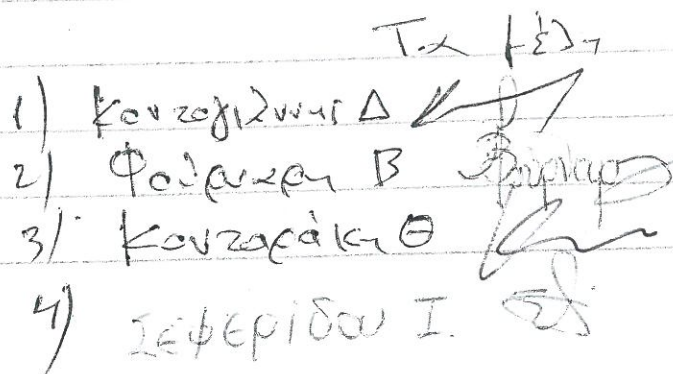 Τα μέλη
1) Κοντογιάννης Δ
2) Φούρναρη Β
3) Κονταράκη Θ
4) Σεφερίδου Ι.